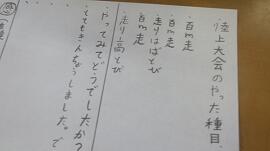 陸上大会のやった種目、
・百m走
・百m走
・走りはばとび
・走り高とび
・やってみてどうでしたか?
・とてもきんちょうしました。で